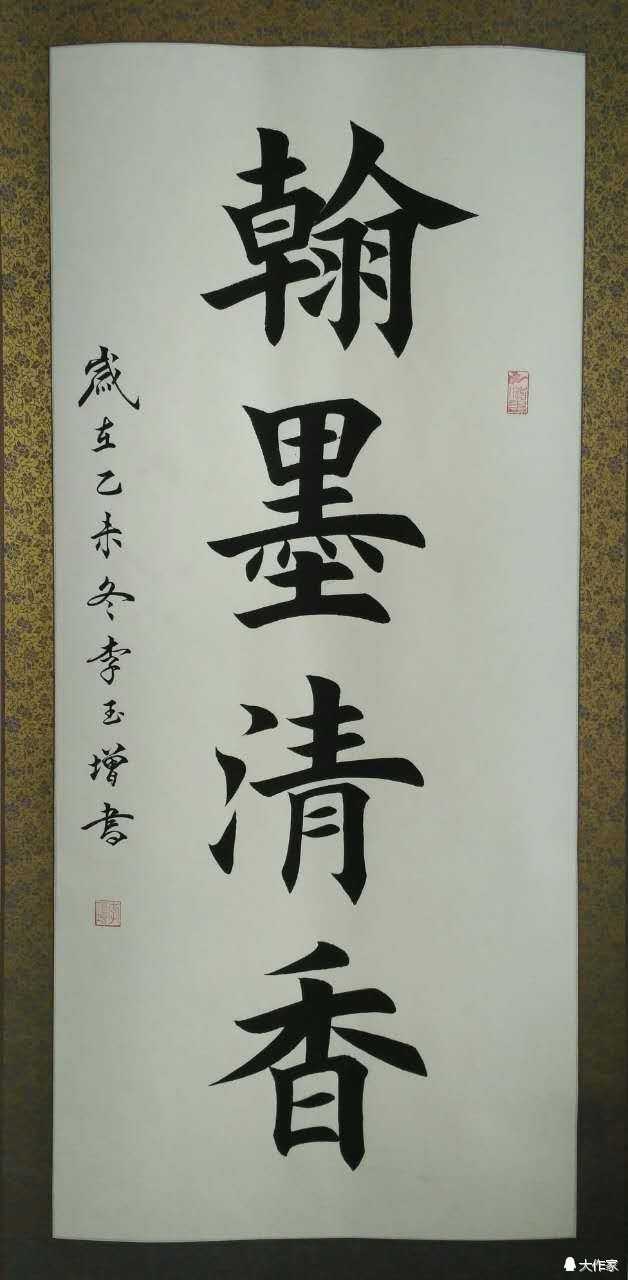 翰墨清香
歲在乙未冬李玉增書
大作家